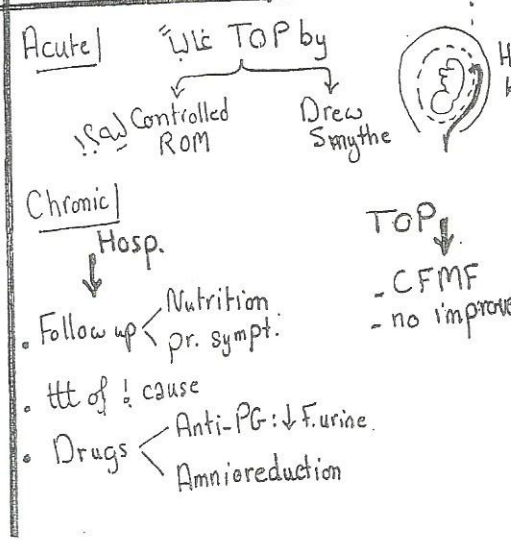 Acute
غالباً TOP by
Controlled ROM ليه؟!
Drew Smythe
H
Chronic
Hosp.
. Follow up
Nutrition
pr. sympt.
. ttt of ! cause
. Drugs
Anti-PG: ↓ F. urine.
Amnioreduction
TOP
- CFMF
- no improve